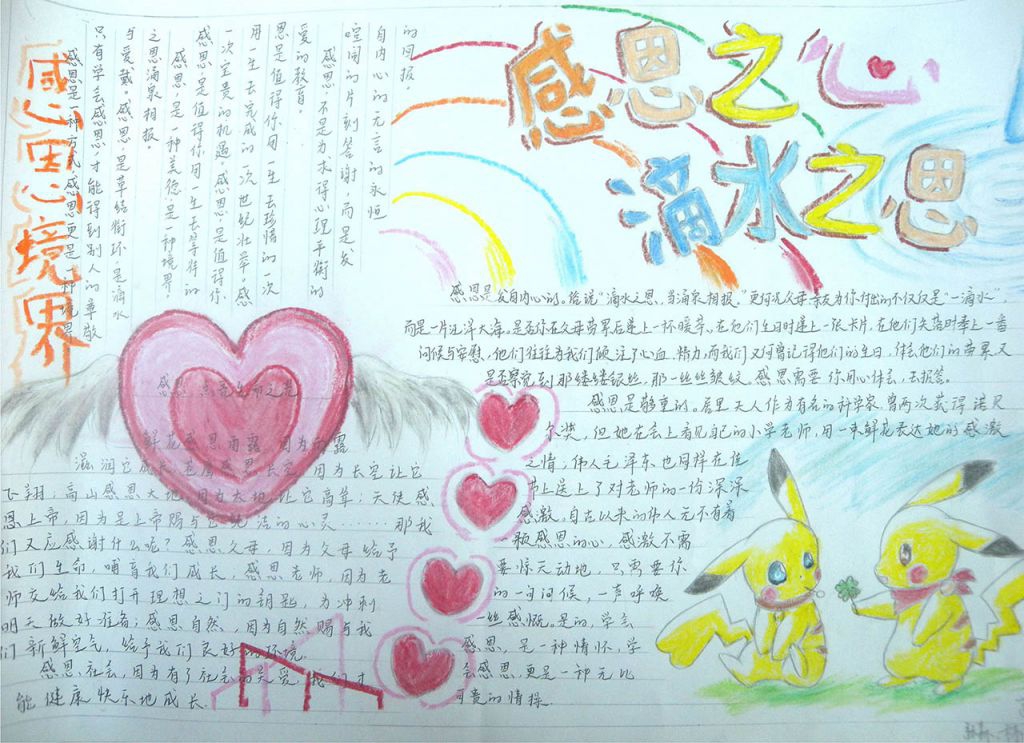 感恩之心
滴水之恩
感恩境界
感恩是一种方式,感恩更是一种境界
只有学会感恩,才能得到别人的尊敬
与爱戴。感恩,是草结衔环,是滴水
之恩涌泉相报。
感恩,是一种美德,是一种境界。
感恩,是值得你用一生去等待的
一次宝贵的机遇,感恩,是值得你
用一生去完成的一次世纪壮举,感
恩是值得你用一生去珍惜的一次
爱的教育。
感恩,不是为求得心理平衡的
喧闹的片刻答谢,而是发
自内心的无言的永恒
的回报。
感恩是发自内心的。俗话说“滴水之恩,当涌泉相报。”更何况父母,亲友为你付出的不仅仅是“一滴水”,
而是一片汪洋大海。是否你在父母劳累后递上一杯暖茶,在他们生日时递上一张卡片,在他们失落时奉上一番
问候与安慰,他们往往为我们倾注了心血、精力,而我们又何曾记得他们的生日,体会他们的劳累,又
是否察觉到那缕缕银丝,那一丝丝皱纹。感恩需要你用心体会,去报答。
感恩是敬重的。居里夫人作为有名的科学家,曾两次获得诺贝
尔奖,但她在会上看见自己的小学老师,用一束鲜花表达她的感激
之情;伟人毛泽东也同样在佳
节上送上了对老师的一份深深
感激。自古以来的伟人无不有着
一颗感恩的心,感激不需
要惊天动地,只需要你
的一句问候,一声呼唤
一丝感慨。是的,学会
感恩,是一种情怀,学
会感恩,更是一种无比
可贵的情操.
感恩 点亮生命之光
鲜花感恩雨露,因为雨露
滋润它成长;苍鹰感恩长空,因为长空让它
飞翔;高山感恩大地,因为大地让它高耸;天使感
恩上帝,因为是上帝赐与它纯洁的心灵……那我
们又应感谢什么呢?感恩父母,因为父母给予
我们生命,哺育我们成长,感恩老师,因为老
师交给我们打开理想之门的钥匙,为冲刺
明天做好准备;感恩自然,因为自然赐与我
们新鲜空气,给予我们良好的环境.
感恩社会,因为有了社会的关爱,我们才
能健康快乐地成长.